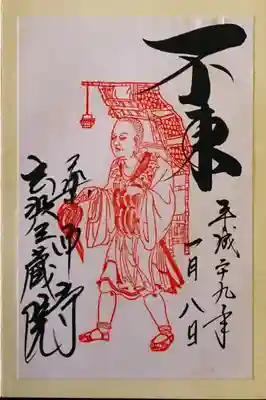 不東
平成廿九年
一月八日
薬師寺
玄奘三蔵院